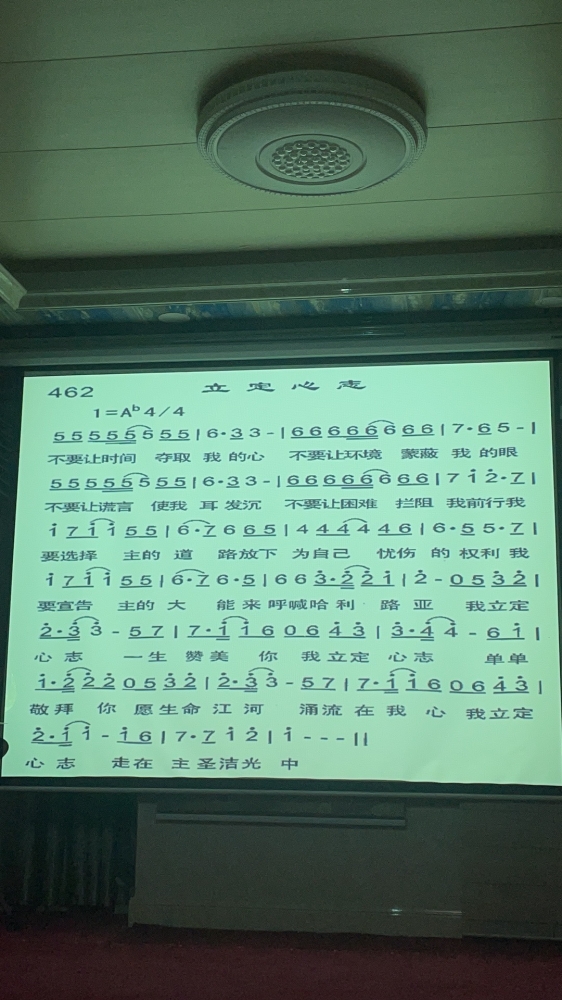 462 立定心志
1=Aᵇ4/4
5 5 5 5 5 5 5 5 | 6·3 3 - | 6 6 6 6 6 6 6 6 6 | 7·6 5 - |
不要让时间 夺取 我 的心 不要让环境 蒙蔽 我 的眼
5 5 5 5 5 5 5 5 5 | 6·3 3 - | 6 6 6 6 6 6 6 6 6 | 7 1̇ 2̇·7 |
不要让谎言 使我 耳 发沉 不要让困难 拦阻 我前行我
1̇ 7 1̇ 1̇ 5 5 | 6·7 6 6 5 | 4 4 4 4 4 6 | 6·5 5·7 |
要选择 主的 道 路放下 为自己 忧伤 的 权利 我
1̇ 7 1̇ 1̇ 5 5 | 6·7 6·5 | 6 6 3̇·2̇ 2̇ 1̇ | 2̇ - 0 5 3̇ 2̇ |
要宣告 主的 大 能来呼喊哈利 路 亚 我立定
2̇·3̇ 3̇ - 5 7 | 7·1̇ 1̇ 6 0 6 4̇ 3̇ | 3̇·4̇ 4̇ - 6 1̇ |
心 志 一生 赞美 你 我立定 心志 单单
1̇·2̇ 2̇ 2̇ 0 5 3̇ 2̇ | 2̇·3̇ 3̇ - 5 7 | 7·1̇ 1̇ 6 0 6 4̇ 3̇ |
敬拜 你 愿生命 江 河 涌流 在 我 心 我立定
2̇·1̇ 1̇ - 1̇ 6 | 7·7 1̇ 2̇ | 1̇ - - - ||
心 志 走在 主圣洁光 中